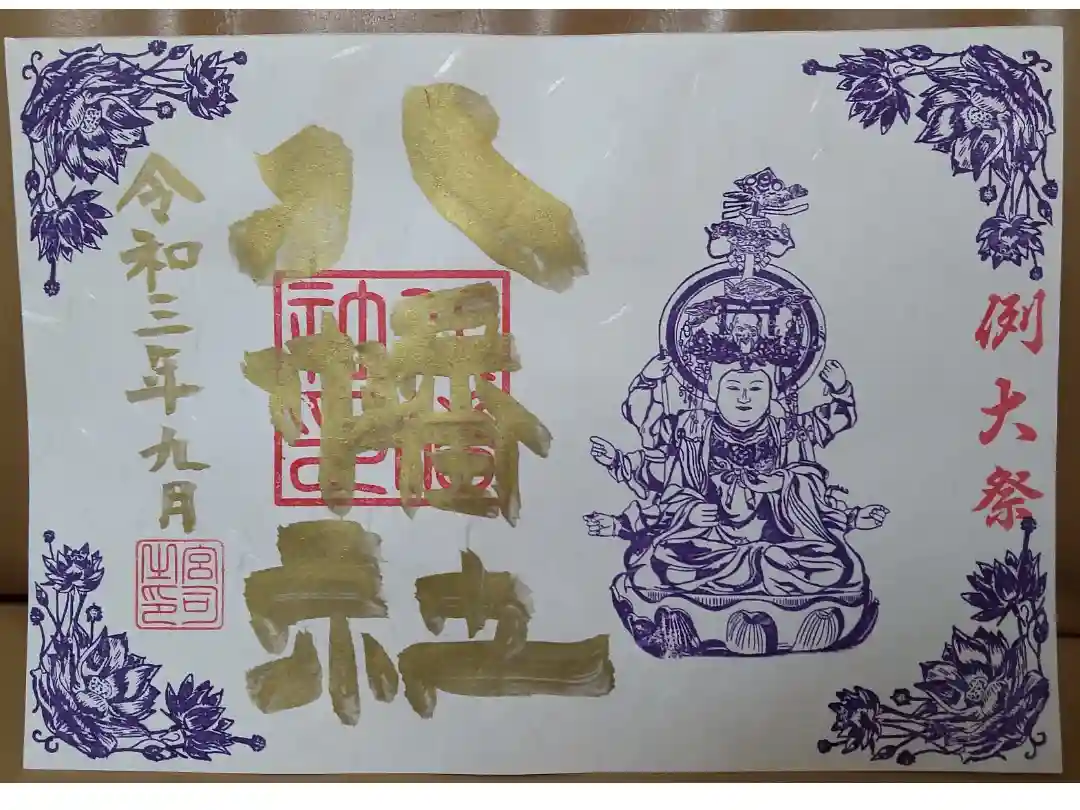 例大祭
八幡社
令和三年九月
宮司之印